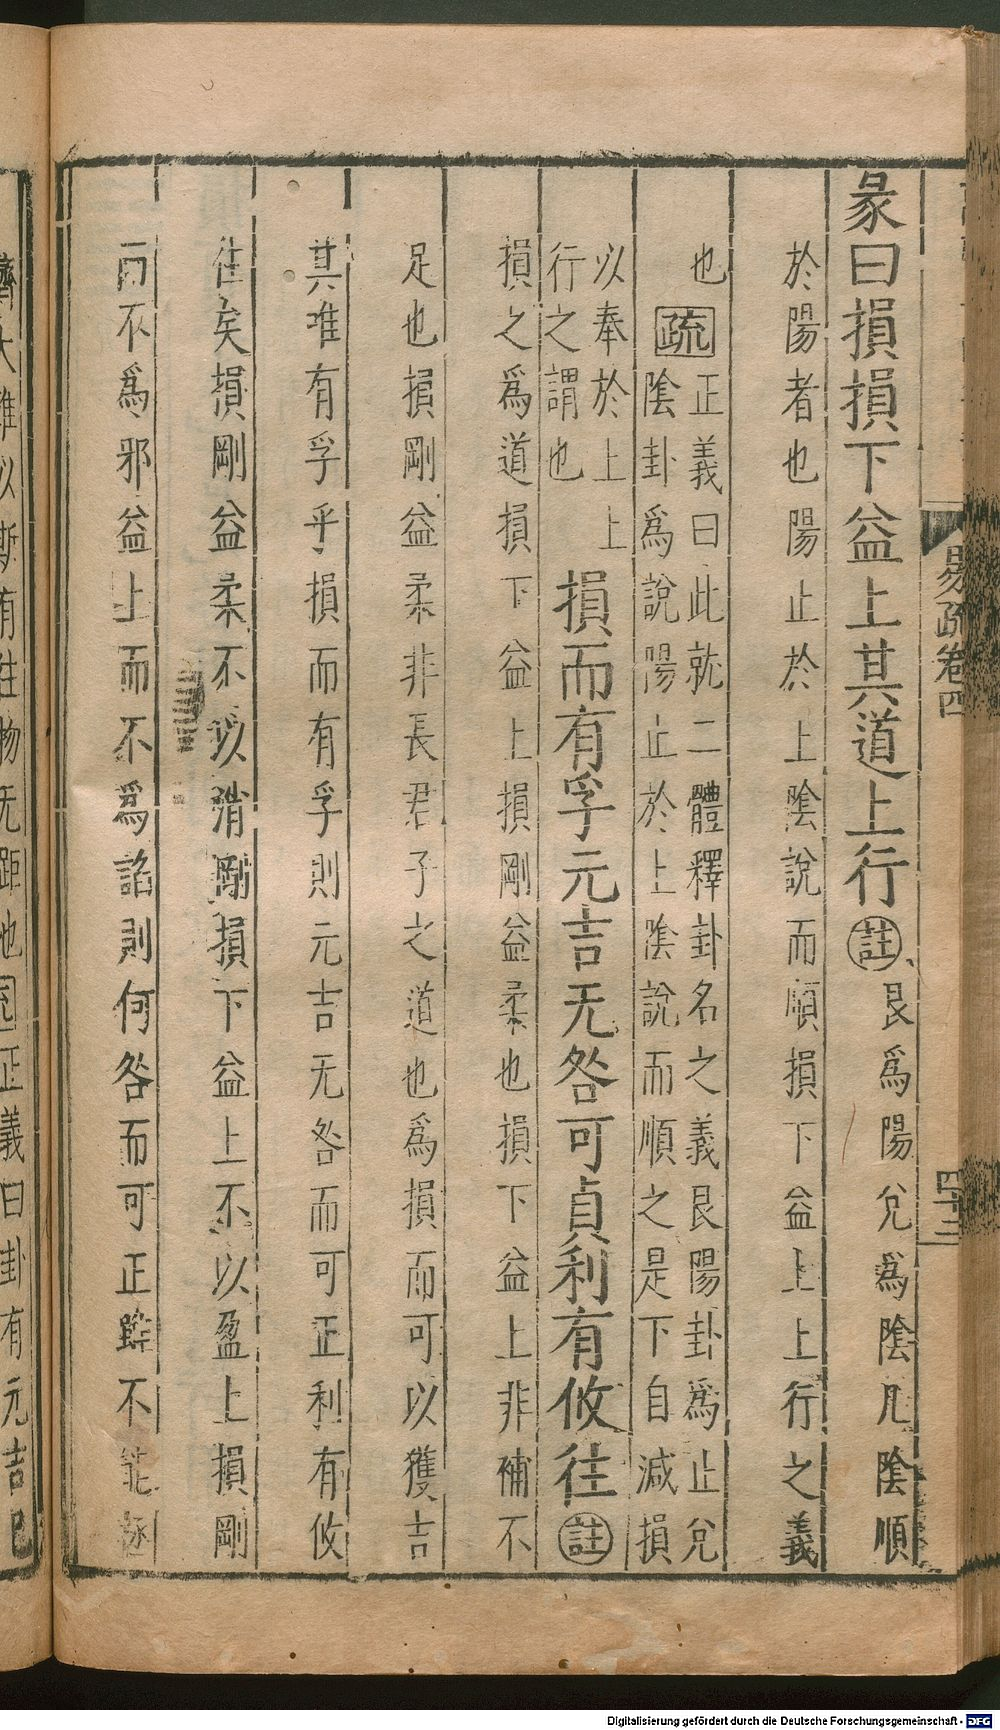 易疏卷四
四十三
彖曰損損下益上其道上行註艮爲陽兌爲陰凡陰順
於陽者也陽止於上陰說而順損下益上上行之義
也疏正義曰此就二體釋卦名之義艮陽卦爲止兌
陰卦爲說陽止於上陰說而順之是下自減損
以奉於上上
行之謂也損而有孚元吉无咎可貞利有攸往註
損之爲道損下益上損剛益柔也損下益上非補不
足也損剛益柔非長君子之道也爲損而可以獲吉
其唯有孚乎損而有孚則元吉无咎而可正利有攸
往矣損剛益柔不以消剛損下益上不以盈上損剛
而不爲邪益上而不爲諂則何咎而可正雖不能拯
濟大難以斯有往物无距也疏正義曰卦有元吉已
Digitalisierung gefördert durch die Deutsche Forschungsgemeinschaft - DFG